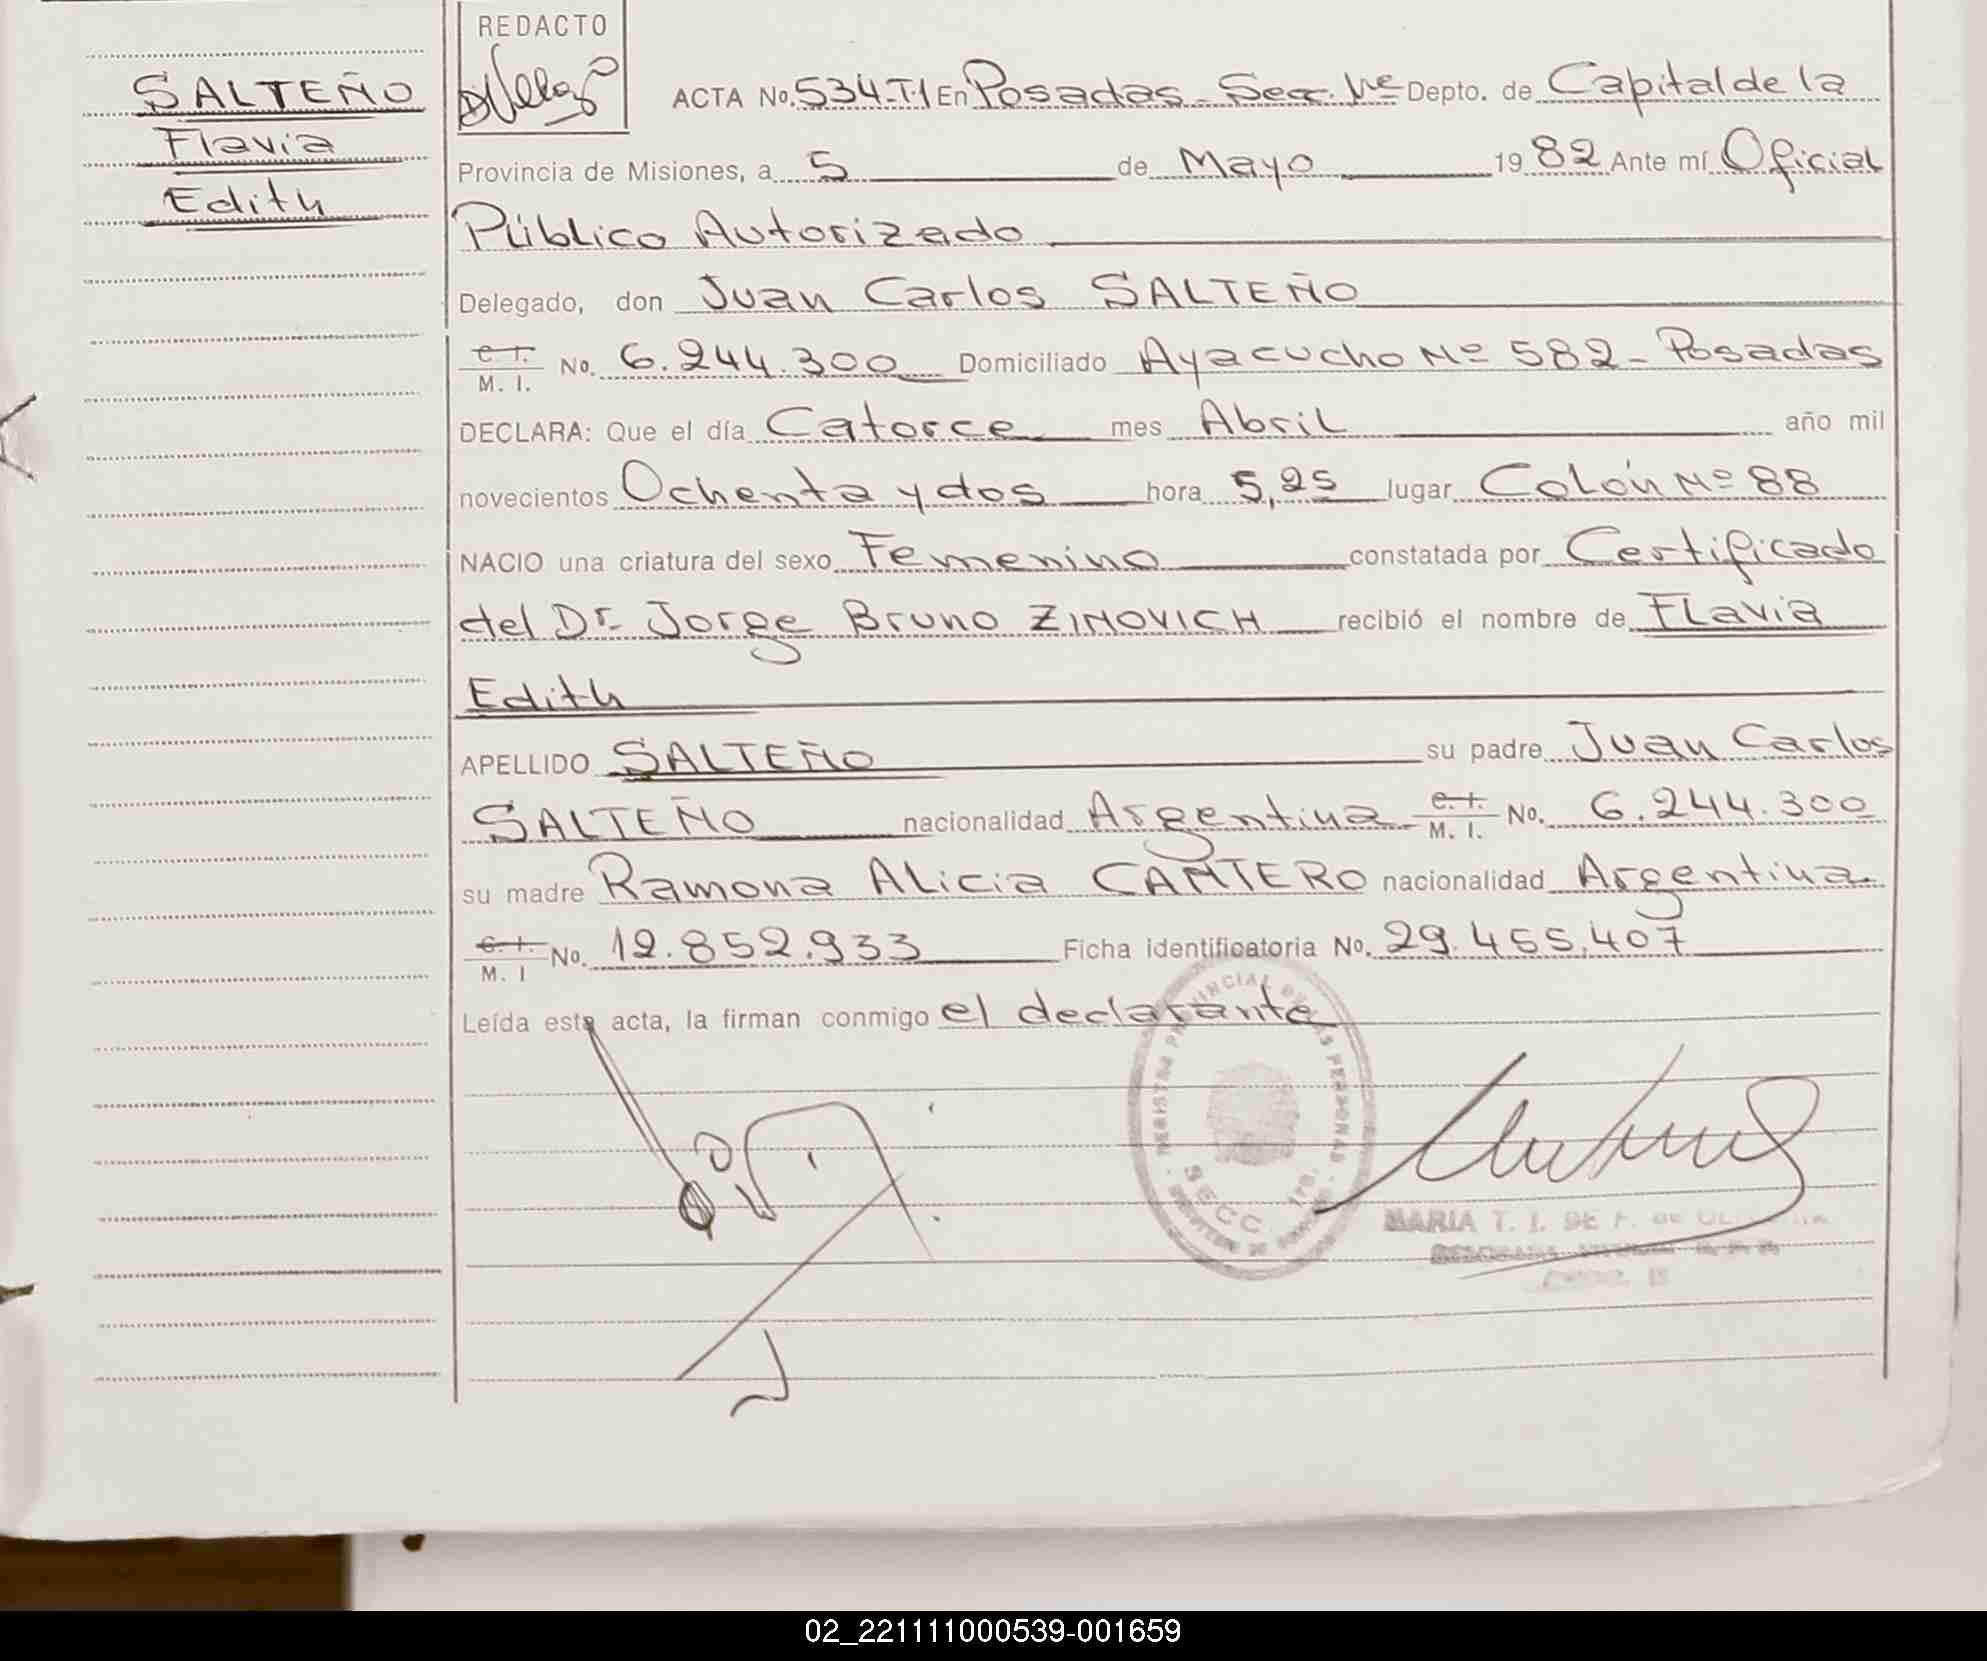 SALTEÑO
Flavia
Edith
REDACTO
ACTA No. 534-T.1 En Posadas - Secc. 1ra Depto. de Capital de la
Provincia de Misiones, a 5 de Mayo 1982 Ante mí Oficial
Público Autorizado
Delegado, don Juan Carlos SALTEÑO
C. I. / M. I. No. 6.244.300 Domiciliado Ayacucho Nº 582 - Posadas
DECLARA: Que el día Catorce mes Abril año mil
novecientos Ochenta y dos hora 5,25 lugar Colón Nº 88
NACIO una criatura del sexo Femenino constatada por Certificado
del Dr. Jorge Bruno ZINOVICH recibió el nombre de Flavia
Edith
APELLIDO SALTEÑO su padre Juan Carlos
SALTEÑO nacionalidad Argentina C. I. / M. I. No. 6.244.300
su madre Ramona Alicia CANTERO nacionalidad Argentina
C. I. / M. I No. 12.852.933 Ficha identificatoria No. 29.465.407
Leída esta acta, la firman conmigo el declarante
REGISTRO PROVINCIAL DE LAS PERSONAS
SECC. 1ra.
MARIA T. I. DE
02_221111000539-001659